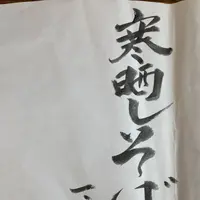 寒晒しそば